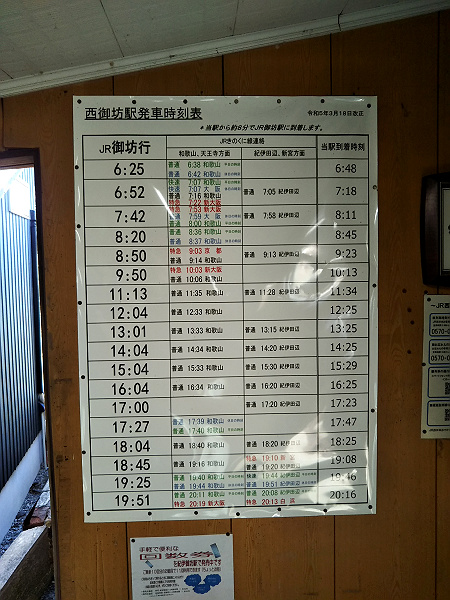 西御坊駅発車時刻表
令和5年3月18日改正
＊当駅から約8分でJR御坊駅に到着します。
JR御坊行 JRきのくに線連絡 当駅到着時刻
和歌山、天王寺方面 紀伊田辺、新宮方面
6:25 普通 6:38 和歌山 平日の時刻 6:48
普通 6:42 和歌山 休日の時刻
6:52 快速 7:07 和歌山 平日の時刻 普通 7:05 紀伊田辺 7:18
快速 7:07 大阪 休日の時刻
普通 7:16 和歌山
特急 7:22 新大阪
7:42 特急 7:53 新大阪 普通 7:58 紀伊田辺 8:11
普通 7:59 大阪 休日の時刻
普通 8:00 和歌山 平日の時刻
8:20 普通 8:36 和歌山 平日の時刻 8:45
普通 8:37 和歌山 休日の時刻
8:50 特急 9:03 京都 普通 9:13 紀伊田辺 9:23
普通 9:14 和歌山
9:50 特急 10:03 新大阪 10:13
普通 10:06 和歌山
11:13 普通 11:35 和歌山 普通 11:28 紀伊田辺 11:34
12:04 普通 12:33 和歌山 12:25
13:01 普通 13:33 和歌山 普通 13:15 紀伊田辺 13:25
14:04 普通 14:34 和歌山 普通 14:20 紀伊田辺 14:25
15:04 普通 15:34 和歌山 普通 15:30 紀伊田辺 15:29
16:04 普通 16:34 和歌山 普通 16:20 紀伊田辺 16:25
17:00 普通 17:20 紀伊田辺 17:23
17:27 普通 17:39 和歌山 休日の時刻 17:47
普通 17:40 和歌山 平日の時刻
18:04 普通 18:40 和歌山 普通 18:20 紀伊田辺 18:25
18:45 普通 19:16 和歌山 特急 19:10 19:08
普通
19:25 普通 19:40 和歌山 平日の時刻 快速 19:44 紀伊田辺 19:46
普通 19:44 和歌山 休日の時刻 普通 19:51 紀伊田辺
19:51 普通 20:11 和歌山 平日の時刻 普通 20:08 紀伊田辺 20:16
特急 20:19 新大阪 特急 20:13 白浜
手軽で便利な
回数券
を紀伊御坊駅で発売中です
～JR西
0570-0
0570-0